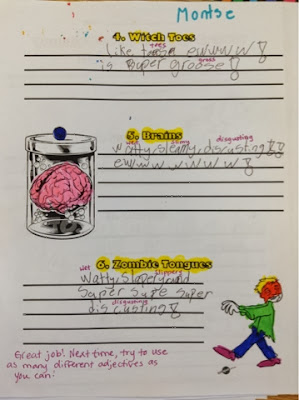 Montse
4. Witch Toes
trees
like treea ewwww!
gross
is super groose!
5. Brains
wet slimy disgusting
watty, sleamy, discusting!!
ewwwwwww!
6. Zombie Tongues
wet slippery
watty, slapery and
super supe super
disgusting
discusting!
Great job! Next time, try to use
as many different adjectives as
you can!